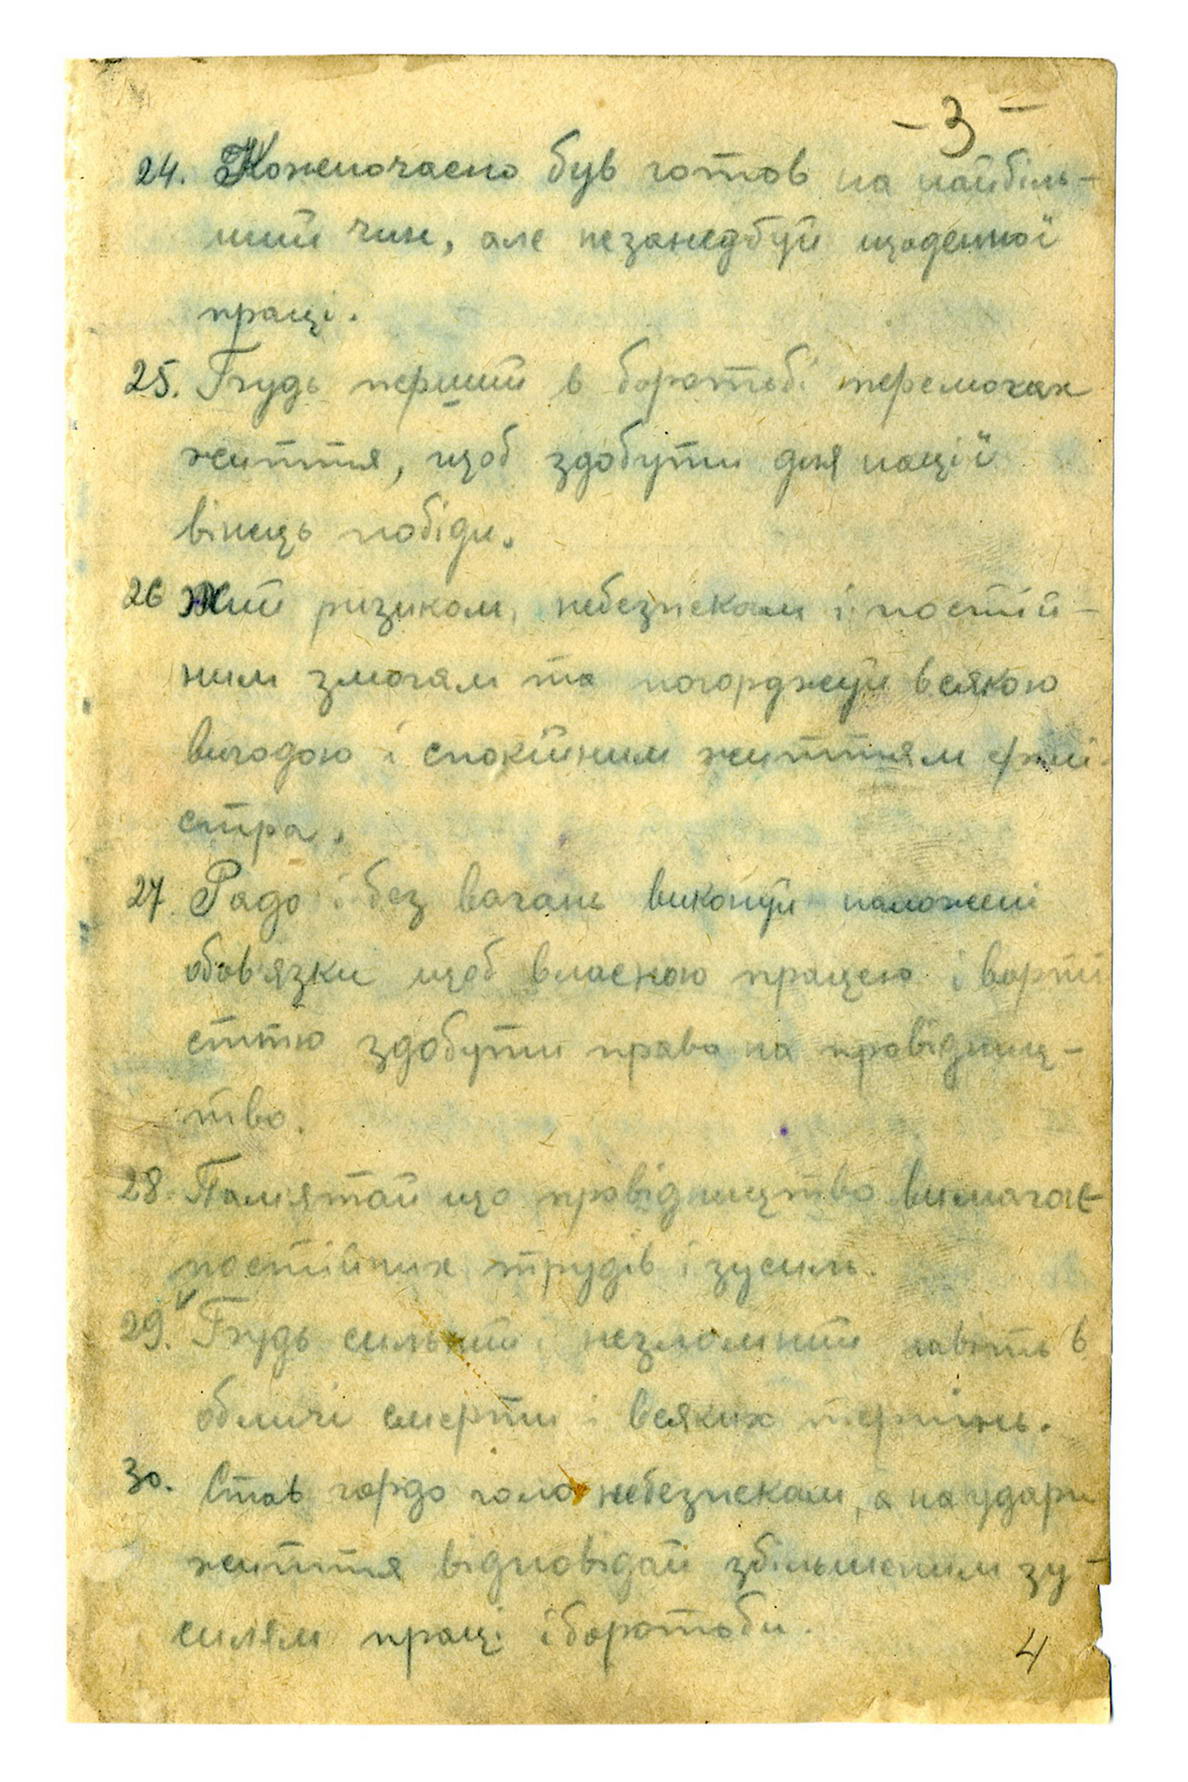 - 3 -
24. Кожночасно був готов на найбіль-
ший чин, але незанедбуй щоденної
праці.
25. Будь перший в боротьбі перемогах
життя, щоб здобути для нації
вінець побіди.
26 Жий ризиком, небезпекам і постій-
ним змогам та погорджуй всякою
вигодою і спокійним життям філі-
стра.
27. Радо і без вагань виконуй наложені
обов'язки щоб власною працею і варті
стю здобути право на провідниц-
тво.
28. Памятай що провідництво вимагає
постійних трудів і зусиль.
29. Будь сильний і незломний навіть в
обличі смерти і всяких терпінь.
30. Став гордо чоло небезпекам, а на удари
життя відповідай збільшеним зу-
силям праці і боротьби.
4